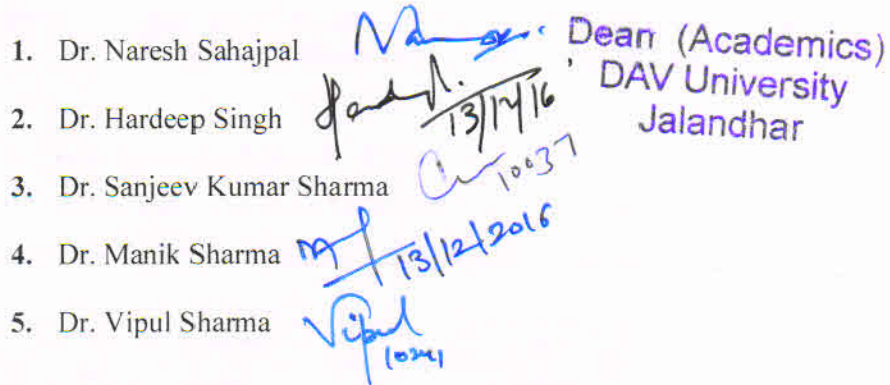 1. Dr. Naresh Sahajpal
Dean (Academics)
DAV University
Jalandhar
2. Dr. Hardeep Singh
13/12/16
3. Dr. Sanjeev Kumar Sharma
10037
4. Dr. Manik Sharma
13/12/2016
5. Dr. Vipul Sharma
Vipul